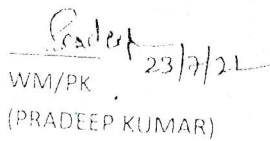 Pradeep 23/7/21
WM/PK
(PRADEEP KUMAR)